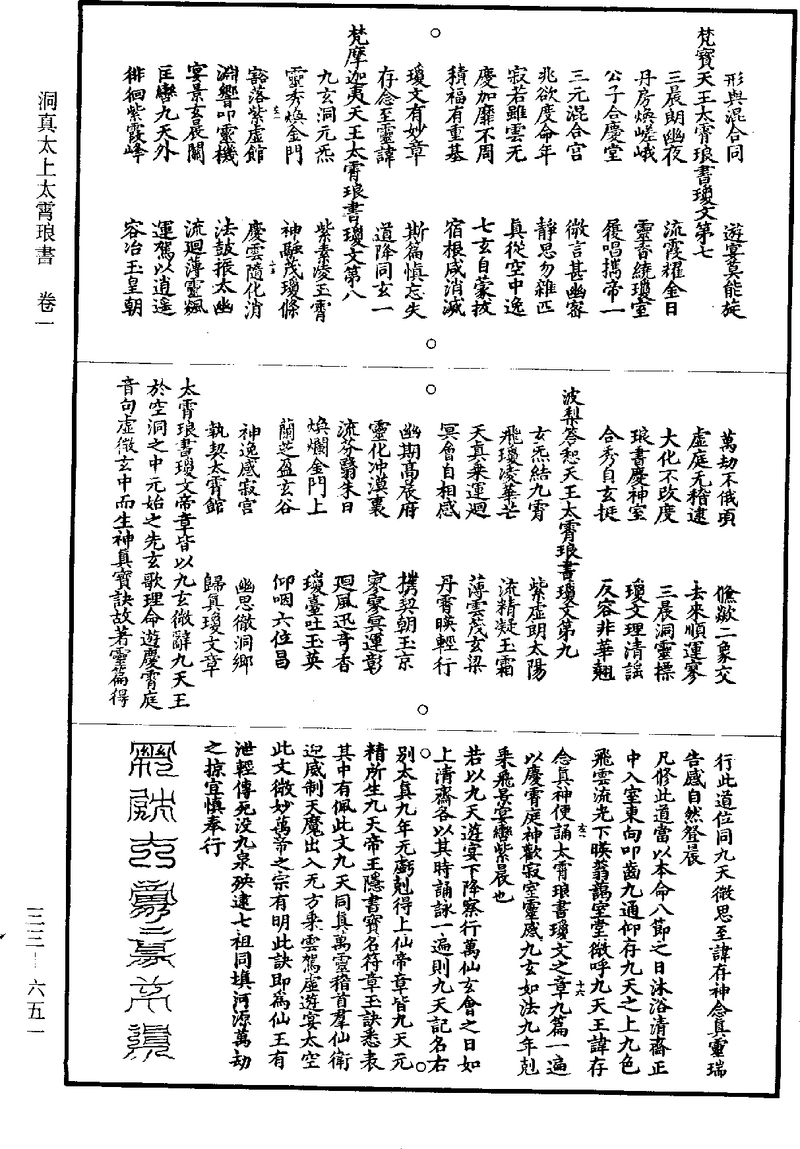 洞真太上太霄琅書　卷一
三三—六五一
形與混合同　遊宴莫能旋
梵寶天王太霄琅書瓊文第七
三晨朗幽夜　流霞耀金日
丹房煥嵯峨　靈香繞瓊室
公子合慶堂　履唱攜帝一
三元混合宮　微言甚幽密
兆欲度命年　靜思勿雜匹
寂若雖雲无　真從空中逸
慶加靡不周　七玄自蒙拔
積福有重基　宿根咸消滅
瓊文有妙章　斯篇慎忘失
存念至靈諱　道降同玄一
梵摩迦夷天王太霄琅書瓊文第八
九玄洞元炁　紫素凌玉霄
靈秀煥金門　神融茂瓊條
豁落紫虛館　慶雲隨化消
淵響叩靈機　法鼓振太幽
宴景玄晨闕　流迴薄靈飆
匡轡九天外　運駕以逍遙
徘徊紫霞峰　容冶玉皇朝
萬劫不俄頃　儵歘二象交
虛庭无稽逮　去來順運寥
大化不改度　三晨洞靈標
琅書慶神室　瓊文理清謠
合秀自玄挺　反容非華翹
波梨荅惒天王太霄琅書瓊文第九
玄炁結九霄　紫虛朗太陽
飛瓊凌華芒　流精凝玉霜
天真乘運迴　薄雲茂玄梁
冥會自相感　丹霄暎輕行
幽期高晨府　攜契朝玉京
靈化沖漠裏　寥寥冥運彰
流芬翳朱日　迴風迅奇香
煥爛金門上　瓊臺吐玉英
蘭芝盈玄谷　仰咽六位昌
神逸感寂宮　幽思徹洞鄉
執契太霄館　歸真瓊文章
太霄琅書瓊文帝章皆以九玄微辭九天王
於空洞之中元始之先玄歌理命遊慶霄庭
音句虛微玄中而生神真寶訣故著靈篇得
行此道位同九天微思至諱存神念真靈瑞
告感自然登晨
凡修此道當以本命八節之日沐浴清齋正
中入室東向叩齒九通仰存九天之上九色
飛雲流光下暎蓊藹室堂微呼九天王諱存
念真神便誦太霄琅書瓊文之章九篇一遍
以慶霄庭神歡寂室靈感九玄如法九年剋
乘飛景宴轡紫晨也
若以九天遊宴下降察行萬仙玄會之日如
上清齋各以其時誦詠一遍則九天記名右
別太真九年元虧剋得上仙帝章皆九天元
精所生九天帝王隱書寶名符章玉訣悉表
其中有佩此文九天同真萬靈稽首羣仙衛
迎威制天魔出入无方乘雲駕虛遊宴太空
此文微妙萬帝之宗有明此訣即為仙王有
泄輕傳死没九泉殃逮七祖同填河源萬劫
之掠宜慎奉行